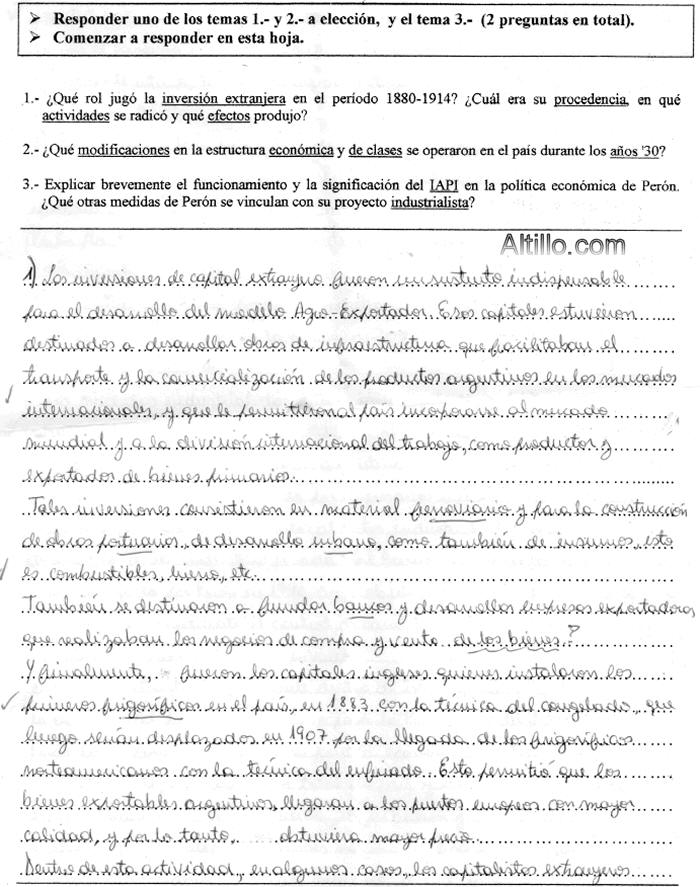 ➢ Responder uno de los temas 1.- y 2.- a elección, y el tema 3.- (2 preguntas en total).
➢ Comenzar a responder en esta hoja.
1.- ¿Qué rol jugó la inversión extranjera en el período 1880-1914? ¿Cuál era su procedencia, en qué
actividades se radicó y qué efectos produjo?
2.- ¿Qué modificaciones en la estructura económica y de clases se operaron en el país durante los años '30?
3.- Explicar brevemente el funcionamiento y la significación del IAPI en la política económica de Perón.
¿Qué otras medidas de Perón se vinculan con su proyecto industrialista?
Altillo.com
1) Las inversiones de capital extranjero fueron un sustento indispensable
para el desarrollo del modelo Agro-Exportador. Esos capitales estuvieron
destinados a desarrollar obras de infraestructura que facilitaban el
transporte y la comercialización de los productos argentinos en los mercados
internacionales, y que le permitieron al país incorporarse al mercado
mundial y a la división internacional del trabajo, como productor y
exportador de bienes primarios.
Tales inversiones consistieron en material ferroviario y para la construcción
de obras portuarias, de desarrollo urbano, como también de insumos, esto
es combustibles, hierro, etc.
También se destinaron a fundar bancos y desarrollar empresas exportadoras
que realizaban los negocios de compra y venta de los bienes. ?
Y finalmente, fueron los capitales ingleses quienes instalaron los
primeros frigoríficos en el país, en 1883 con la técnica del congelado, que
luego serían desplazados en 1907 por la llegada de los frigoríficos
norteamericanos con la técnica del enfriado. Esto permitió que los
bienes exportables argentinos, llegaran a los puertos europeos con mayor
calidad, y por lo tanto, obtuviera mayor precio.
Dentro de esta actividad, en algunos casos, los capitalistas extranjeros